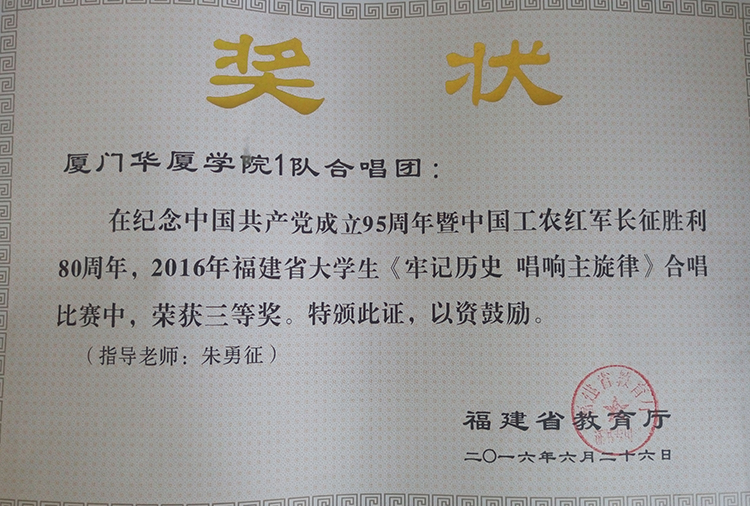 奖状
厦门华厦学院1队合唱团：
在纪念中国共产党成立95周年暨中国工农红军长征胜利
80周年，2016年福建省大学生《牢记历史 唱响主旋律》合唱
比赛中，荣获三等奖。特颁此证，以资鼓励。
（指导老师：朱勇征）
福建省教育厅
二〇一六年六月二十六日